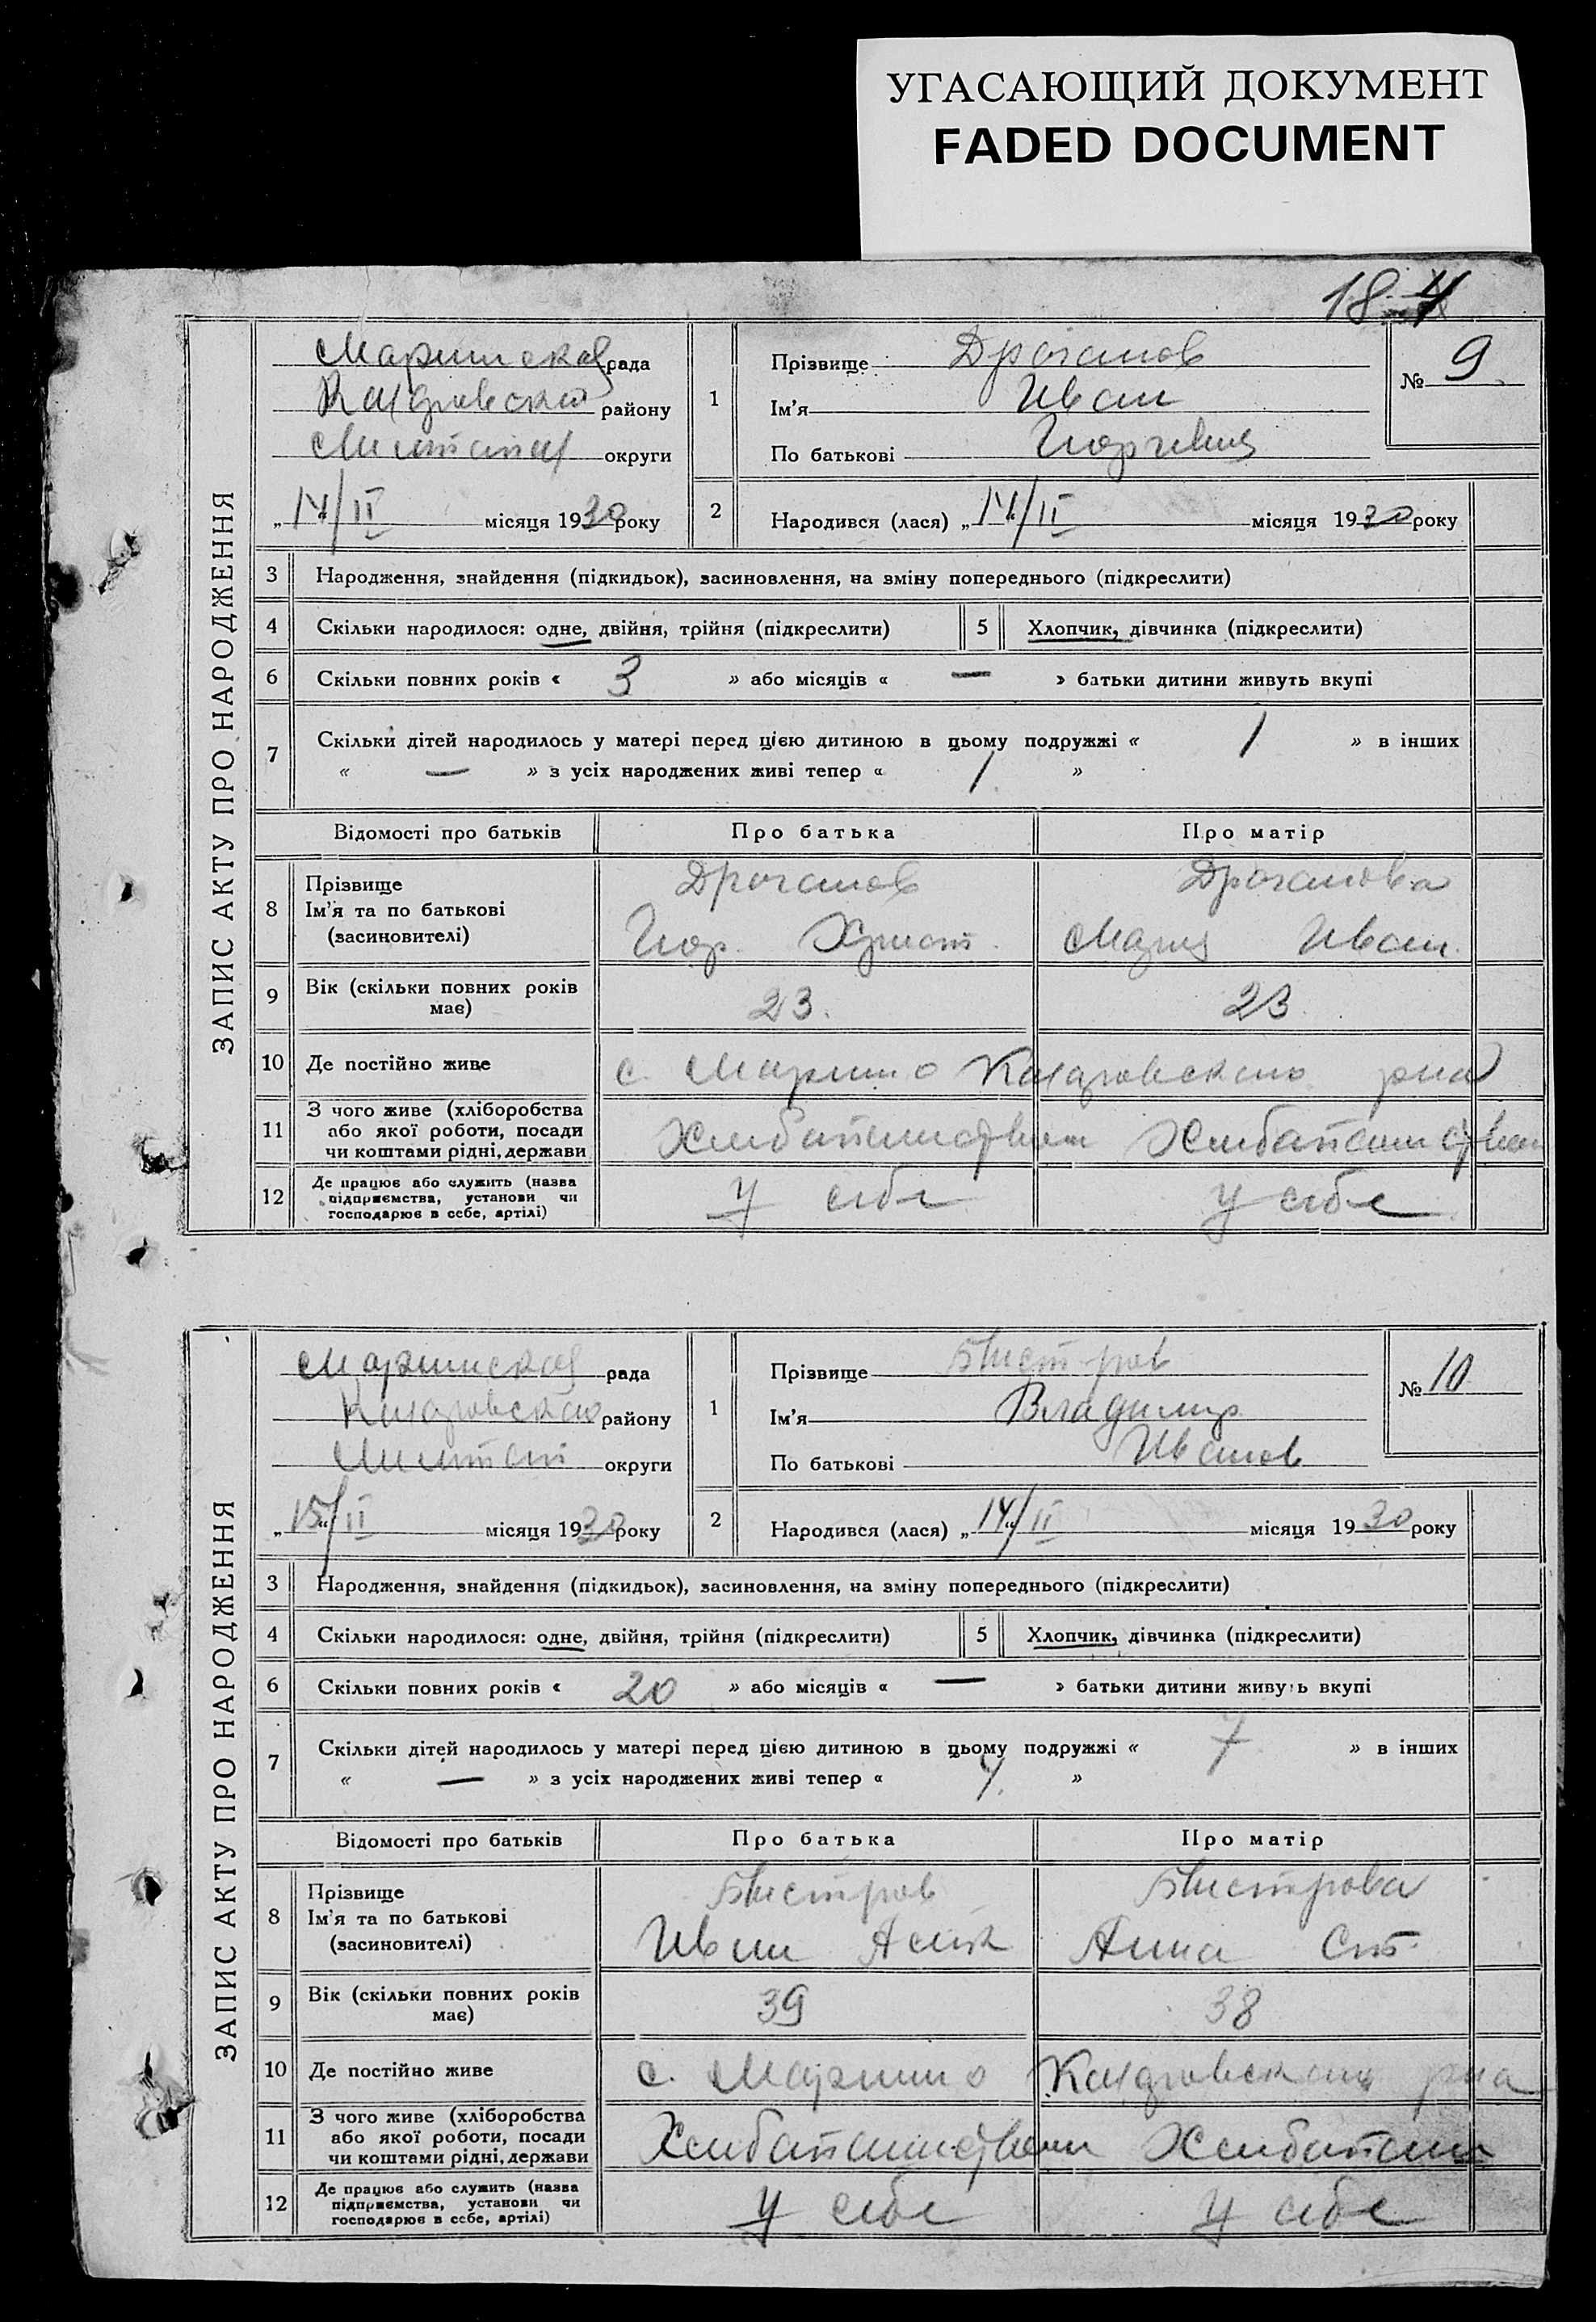 УГАСАЮЩИЙ ДОКУМЕНТ
FADED DOCUMENT
18
ЗАПИС АКТУ ПРО НАРОДЖЕННЯ
рада
району
округи
„14/II місяця 1930 року
1 Прізвище Драганов
Ім'я Иван
По батькові
№ 9
2 Народився (лася) „14/II місяця 1930 року
3 Народження, знайдення (підкидьок), засиновлення, на зміну попереднього (підкреслити)
4 Скільки народилося: одне, двійня, трійня (підкреслити) 5 Хлопчик, дівчинка (підкреслити)
6 Скільки повних років « 3 » або місяців « — » батьки дитини живуть вкупі
7 Скільки дітей народилось у матері перед цією дитиною в цьому подружжі « 1 » в інших
« — » з усіх народжених живі тепер « 1 »
Відомості про батьків Про батька Про матір
8 Прізвище Драганов Драганова
Ім'я та по батькові Христ. Мария Иван.
(засиновителі)
9 Вік (скільки повних років має) 23. 23.
10 Де постійно живе с. Марино
11 З чого живе (хліборобства
або якої роботи, посади
чи коштами рідні, держави
12 Де працює або служить (назва
підприємства, установи чи
господарює в себе, артілі) У себе У себе
ЗАПИС АКТУ ПРО НАРОДЖЕННЯ
рада
району
округи
„15/II місяця 1930 року
1 Прізвище Быстров
Ім'я Владимир
По батькові Иванов
№ 10
2 Народився (лася) „14/II місяця 1930 року
3 Народження, знайдення (підкидьок), засиновлення, на зміну попереднього (підкреслити)
4 Скільки народилося: одне, двійня, трійня (підкреслити) 5 Хлопчик, дівчинка (підкреслити)
6 Скільки повних років « 20 » або місяців « — » батьки дитини живуть вкупі
7 Скільки дітей народилось у матері перед цією дитиною в цьому подружжі « 7 » в інших
« — » з усіх народжених живі тепер « »
Відомості про батьків Про батька Про матір
8 Прізвище Быстров Быстрова
Ім'я та по батькові Иван Анна Ст.
(засиновителі)
9 Вік (скільки повних років має) 39 38
10 Де постійно живе с. Марино
11 З чого живе (хліборобства
або якої роботи, посади
чи коштами рідні, держави
12 Де працює або служить (назва
підприємства, установи чи
господарює в себе, артілі) У себе У себе